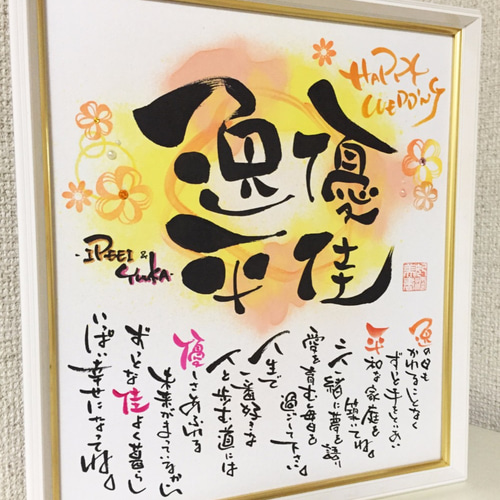 HAPPY
WEDDING
優佳
逸平
IPPEI &
YUKA
逸の日も
かわることなく
ずっと手をとりあい
平和な家庭を
築いてね。
二人一緒に夢を語り
愛を育む毎日を
過ごして下さい。
人生で
一番好きな
人と歩む道には
優しさあふれる
未来がまっているから
ずっとな佳よく暮らし
いっぱい幸せになってね。